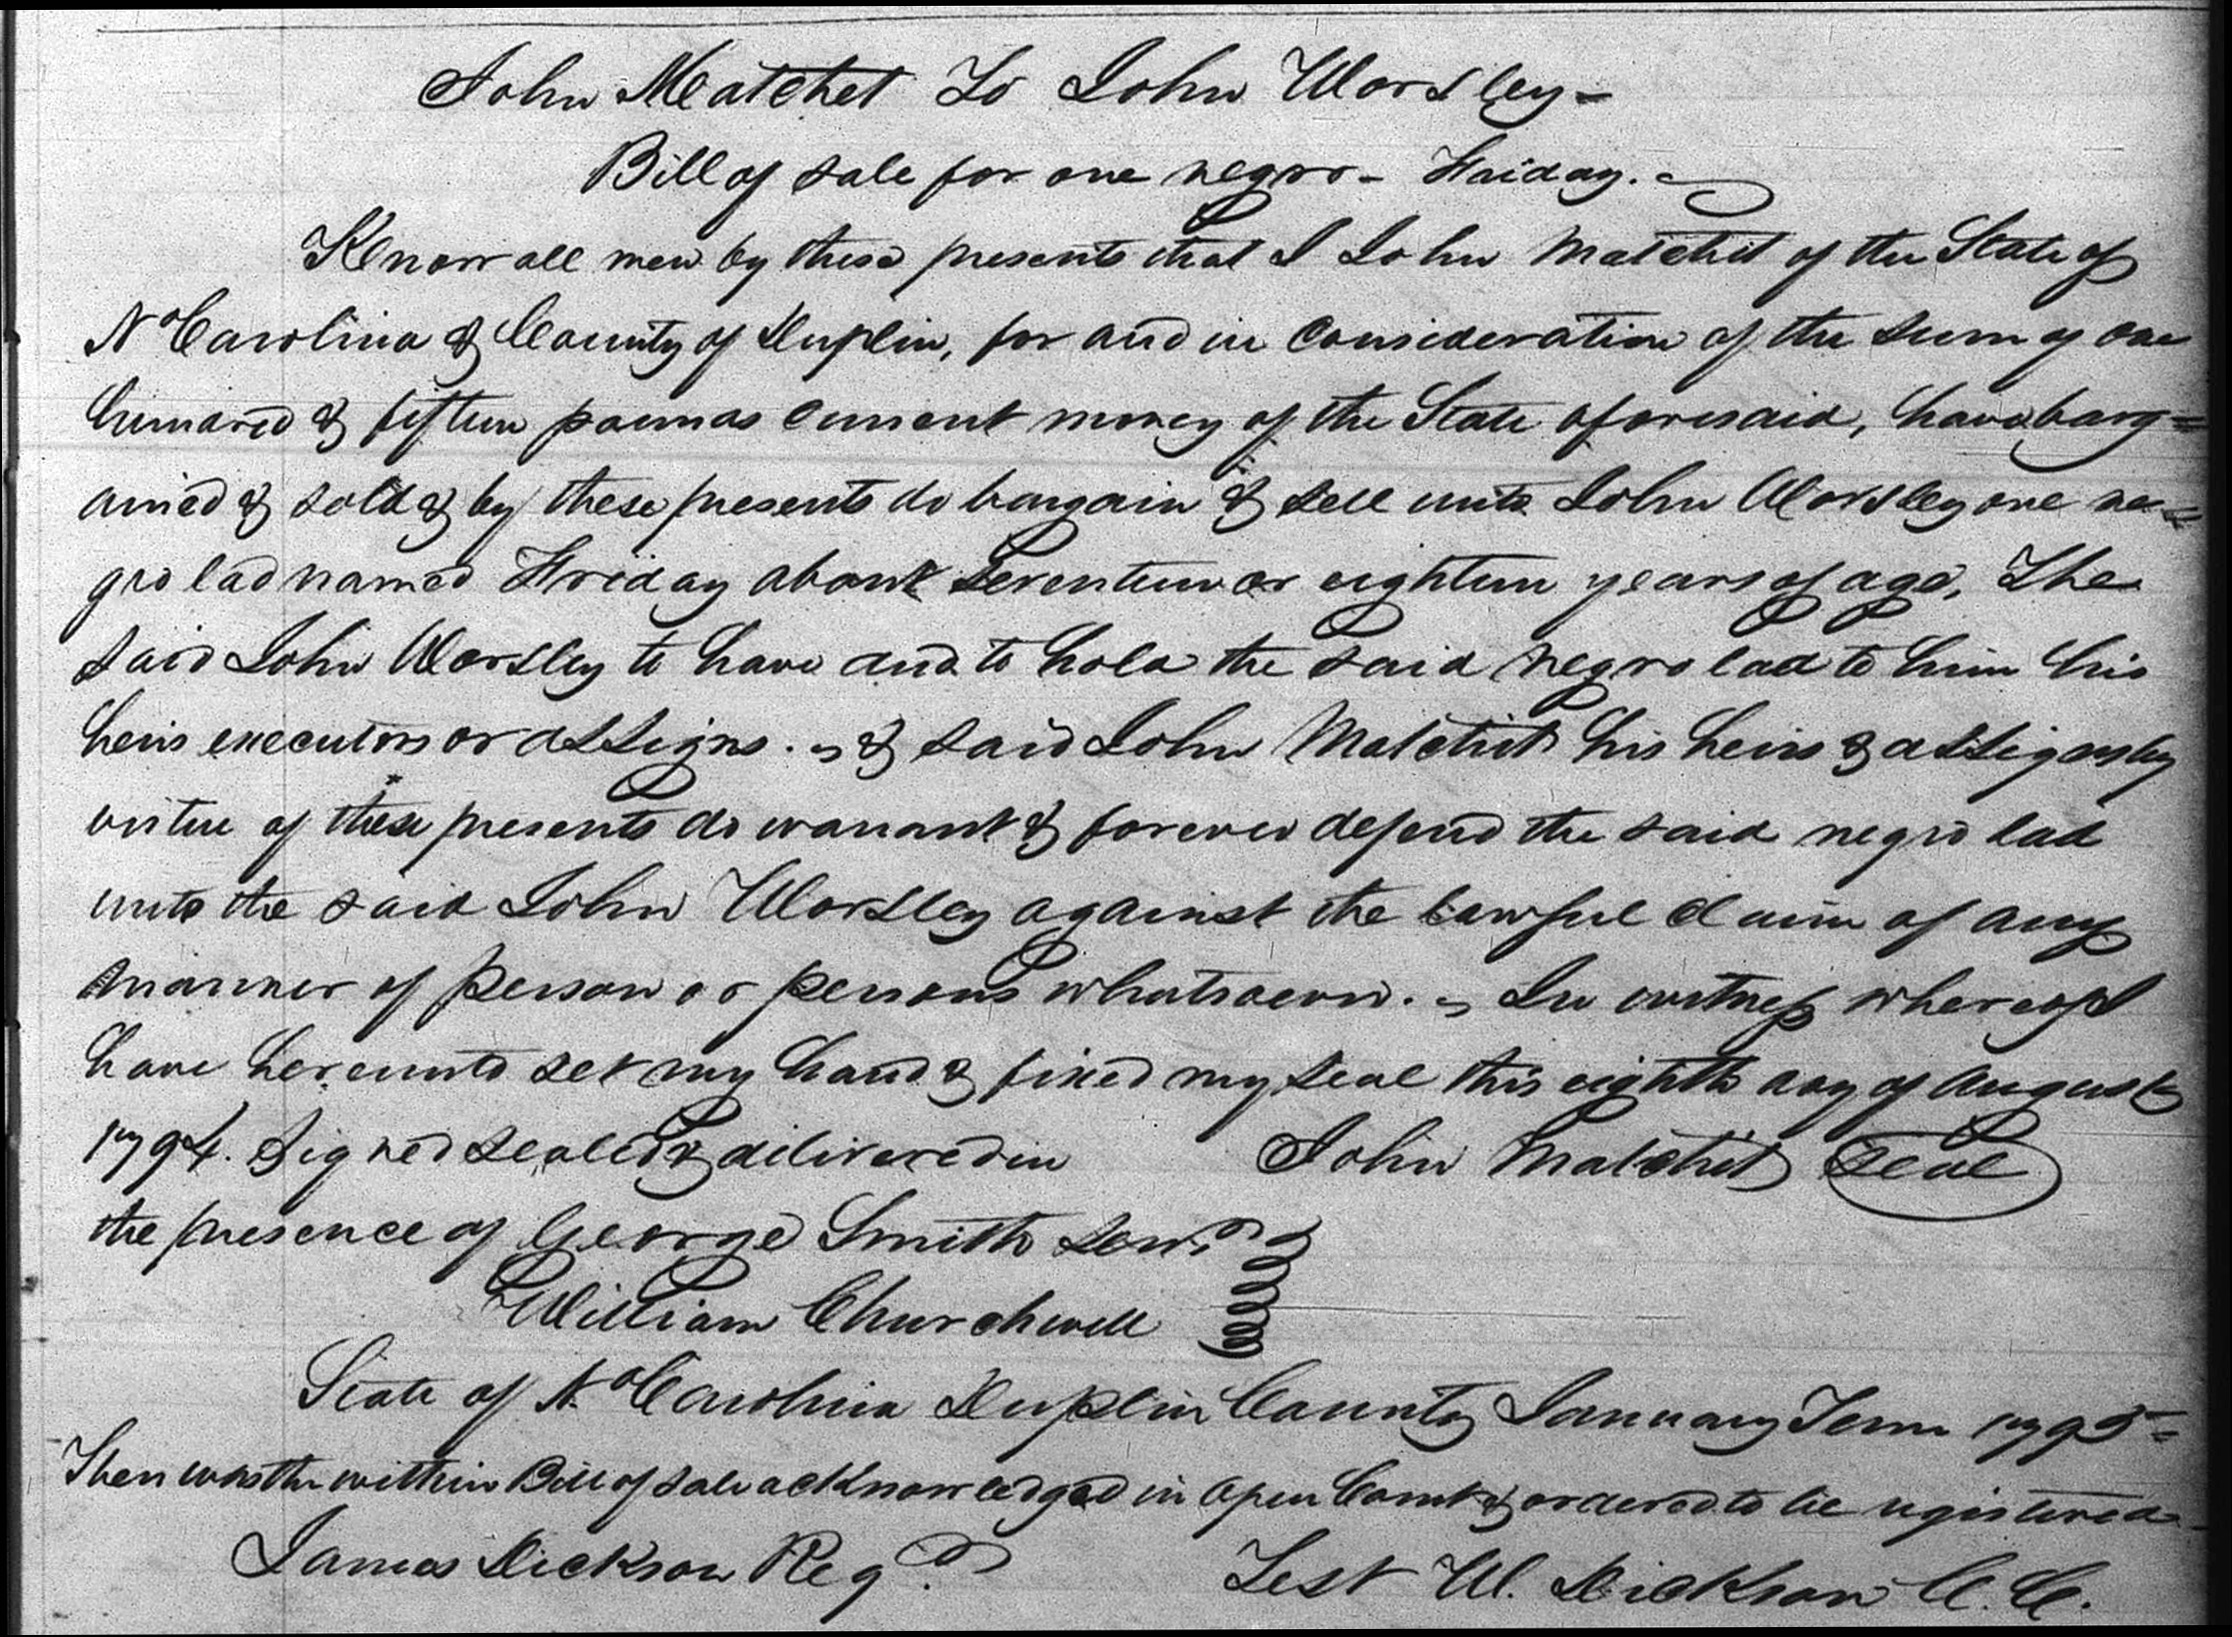 John Matchet To John Worsley -
Bill of sale for one negro - Friday.
Know all men by these presents that I John Matchet of the State of
No Carolina & County of Duplin, for and in consideration of the sum of one
hundred & fifteen pounds current money of the State aforesaid, have barg=
ained & sold & by these presents do bargain & sell unto John Worsley one ne=
gro lad named Friday about seventeen or eighteen years of age, The
said John Worsley to have and to hold the said negro lad to him his
heirs executors or assigns. & said John Matchet his heirs & assigns by
virtue of these presents do warrant & forever defend the said negro lad
unto the said John Worsley against the lawful claim of any
manner of person or persons whatsoever. In witness whereof I
have hereunto set my hand & fixed my seal this eighth day of August
1794. Signed sealed & delivered in John Matchet Seal
the presence of George Smith Senr.
William Churchwell
State of No Carolina Duplin County January Term 1795 =
Then was the within Bill of sale acknowledged in open Court & ordered to be registered
James Dickson Regr. Test W. Dickson C. C.